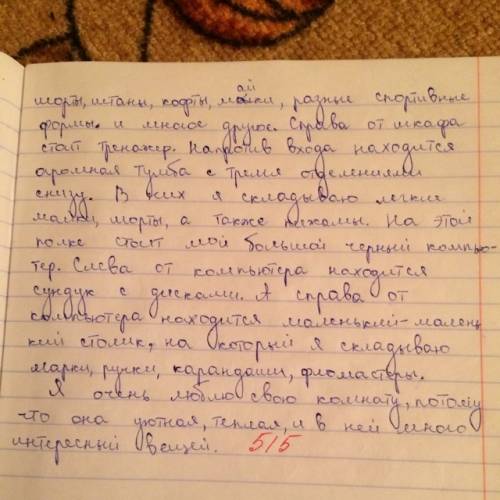 шорты, штаны, кофты, майки, разные спортивные
формы. и многое другое. Справа от шкафа
стоит тренажер. Напротив входа находится
огромная тумба с тремя отделениями
снизу. В них я складываю легкие
майки, шорты, а также пижамы. На этой
полке стоит мой большой черный компью-
тер. Слева от компьютера находится
сундук с дисками. А справа от
компьютера находится маленький-малень
кий столик, на который я складываю
марки, ручки, карандаши, фломастеры.
Я очень люблю свою комнату, потому
что она уютная, теплая, и в ней много
интересный вещей. 5/5